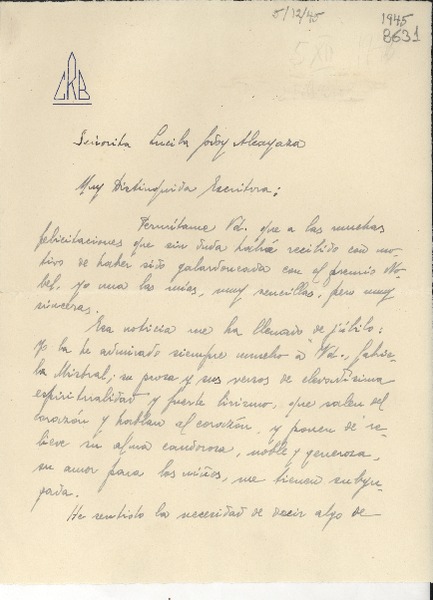 5/12/45
1945
8631
CRB
Señorita Lucila Godoy Alcayaza
Muy Distinguida Escritora;
Permítame Vd. que a las muchas
felicitaciones que sin duda habrá recibido con mo-
tivo de haber sido galardonada con el premio No-
bel, yo una las mías, muy sencillas, pero muy
sinceras.
Esa noticia me ha llenado de júbilo:
Yo la he admirado siempre mucho a Vd., Gabrie-
la Mistral; su prosa y sus versos de elevadísima
espiritualidad y fuerte lirismo, que salen del
corazón y hablan al corazón, y ponen de re-
lieve su alma candorosa, noble y generosa,
su amor para los niños, me tienen subyu-
gada.
He sentido la necesidad de decir algo de